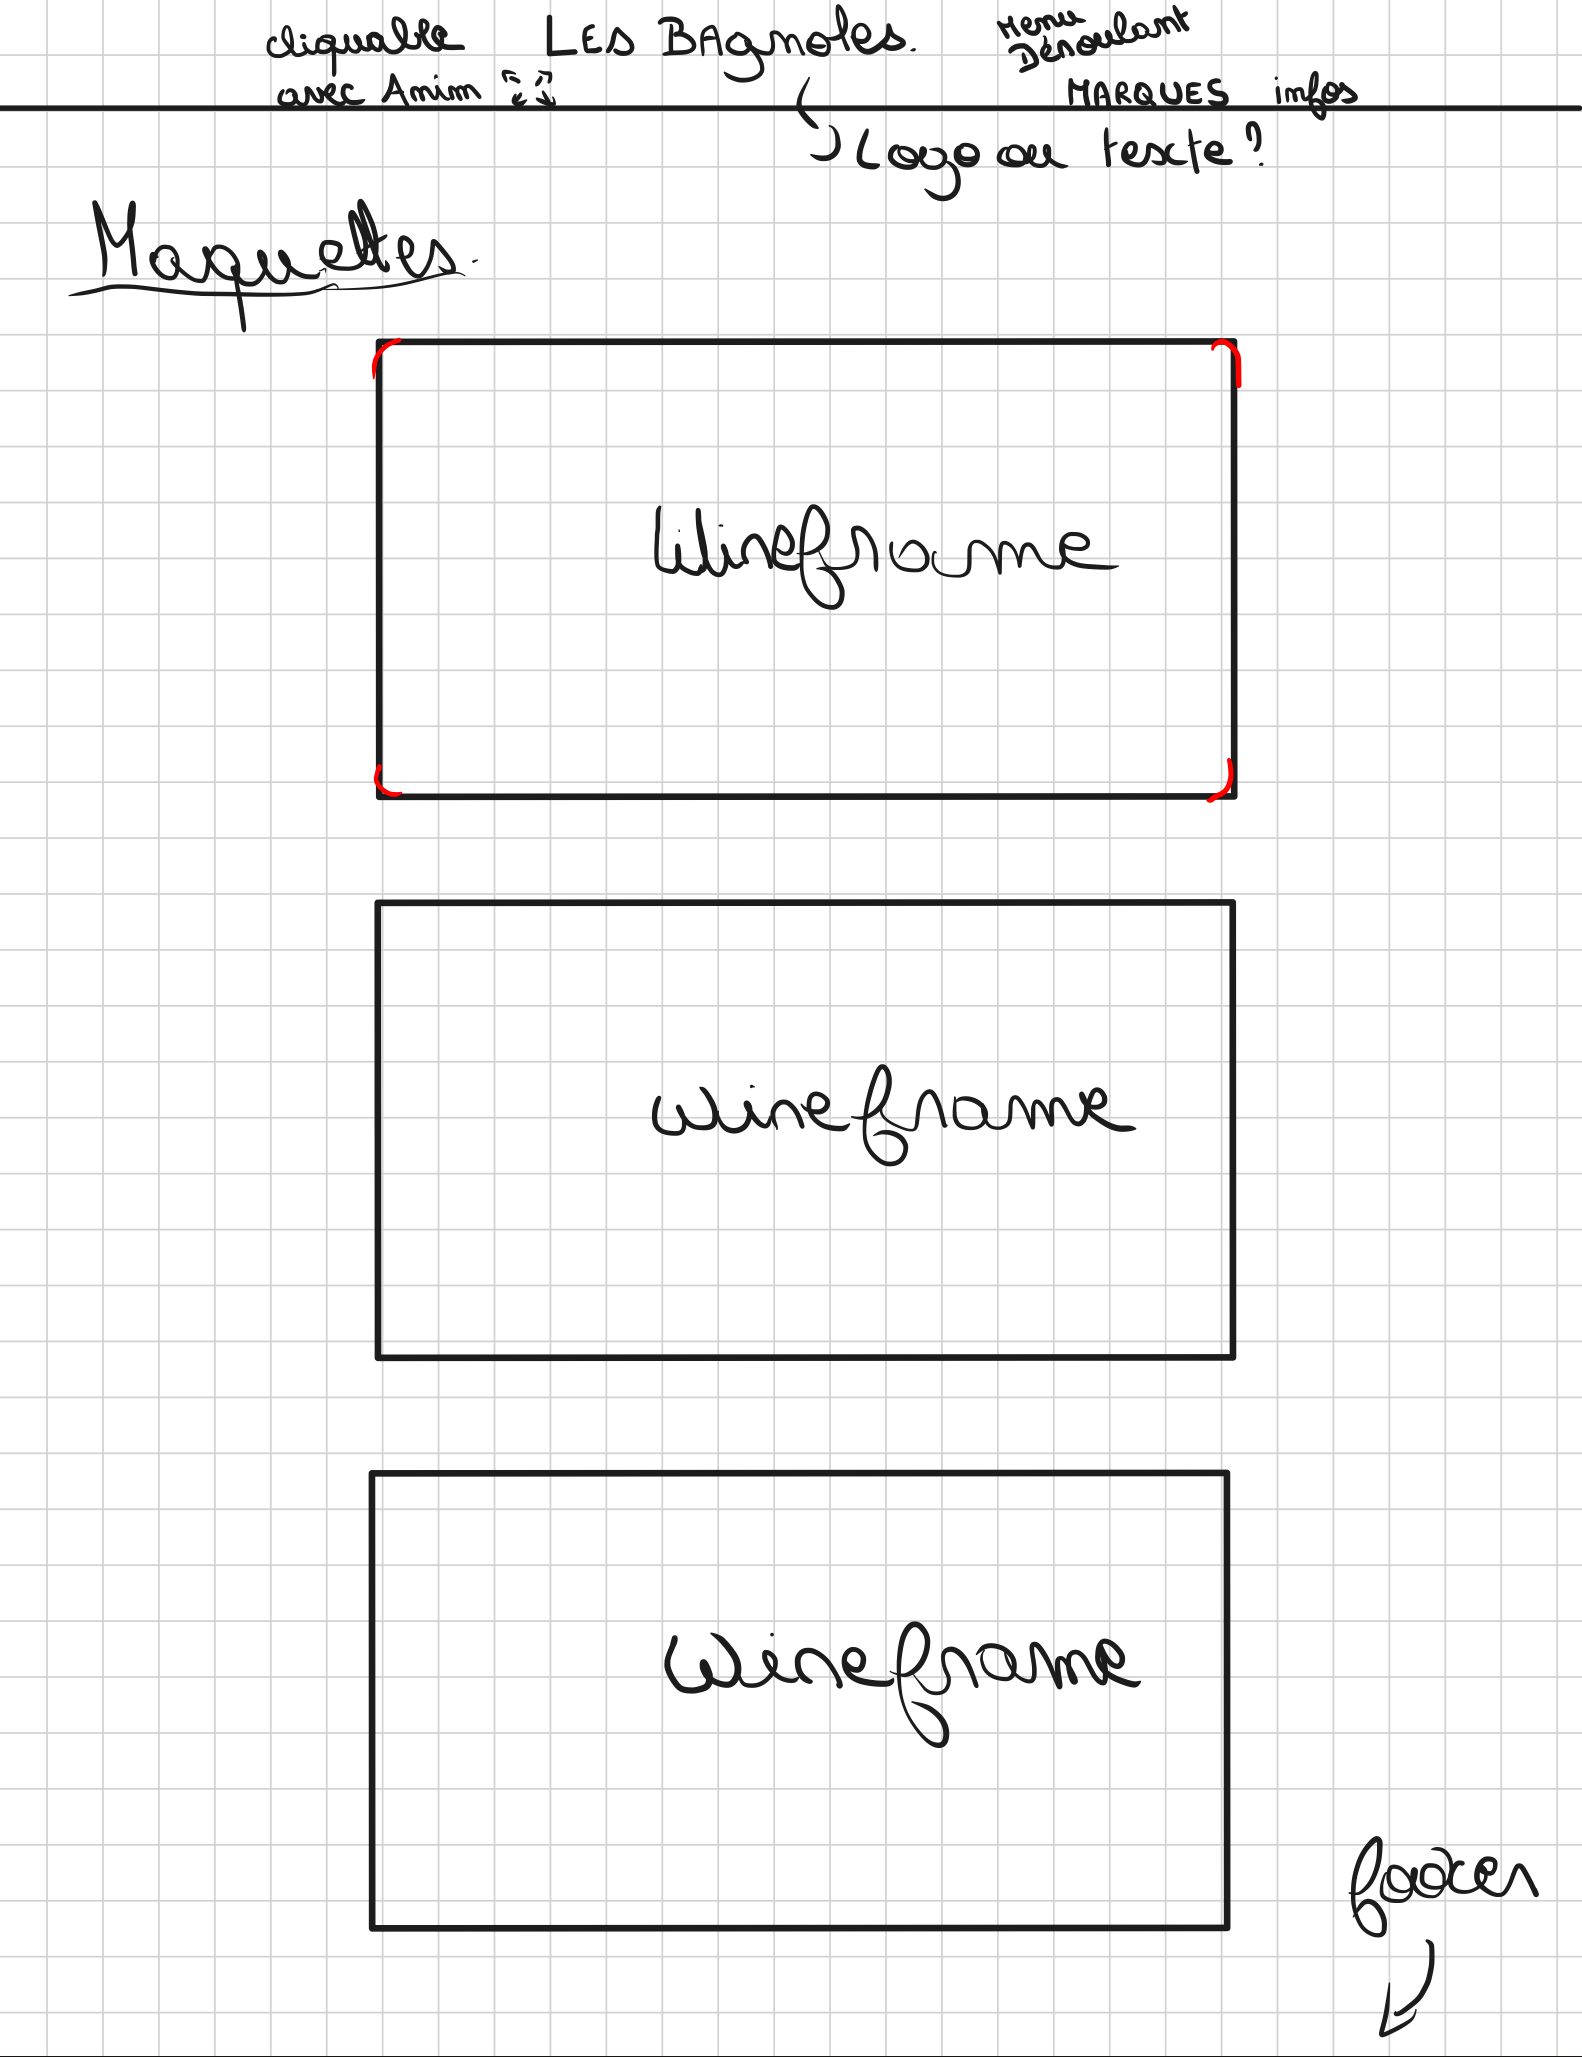 cliquable
avec Anim
LES BAgnoles.
Menu
Déroulant
MARQUES infos
Logo ou texte ?
Maquettes.
Wireframe
wireframe
wireframe
footer